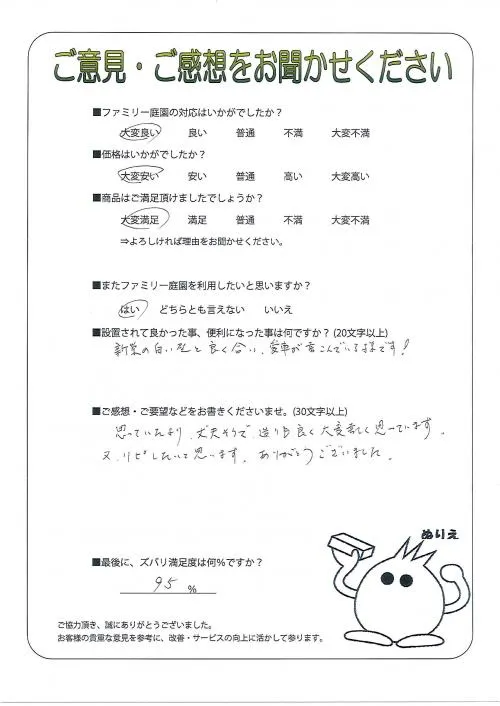 ご意見・ご感想をお聞かせください
■ファミリー庭園の対応はいかがでしたか？
大変良い 良い 普通 不満 大変不満
■価格はいかがでしたか？
大変安い 安い 普通 高い 大変高い
■商品はご満足頂けましたでしょうか？
大変満足 満足 普通 不満 大変不満
⇒よろしければ理由をお聞かせください。
■またファミリー庭園を利用したいと思いますか？
はい どちらとも言えない いいえ
■設置されて良かった事、便利になった事は何ですか？(20文字以上)
新築の白い家と良く合い、愛車が喜こんでいる様です!
■ご感想・ご要望などをお書きくださいませ。(30文字以上)
思っていたより、丈夫そうで、造りも良く大変嬉しく思っています。
又、リピしたいと思います。ありがとうございました。
ぬりえ
■最後に、ズバリ満足度は何％ですか？
95 %
ご協力頂き、誠にありがとうございました。
お客様の貴重な意見を参考に、改善・サービスの向上に活かして参ります。